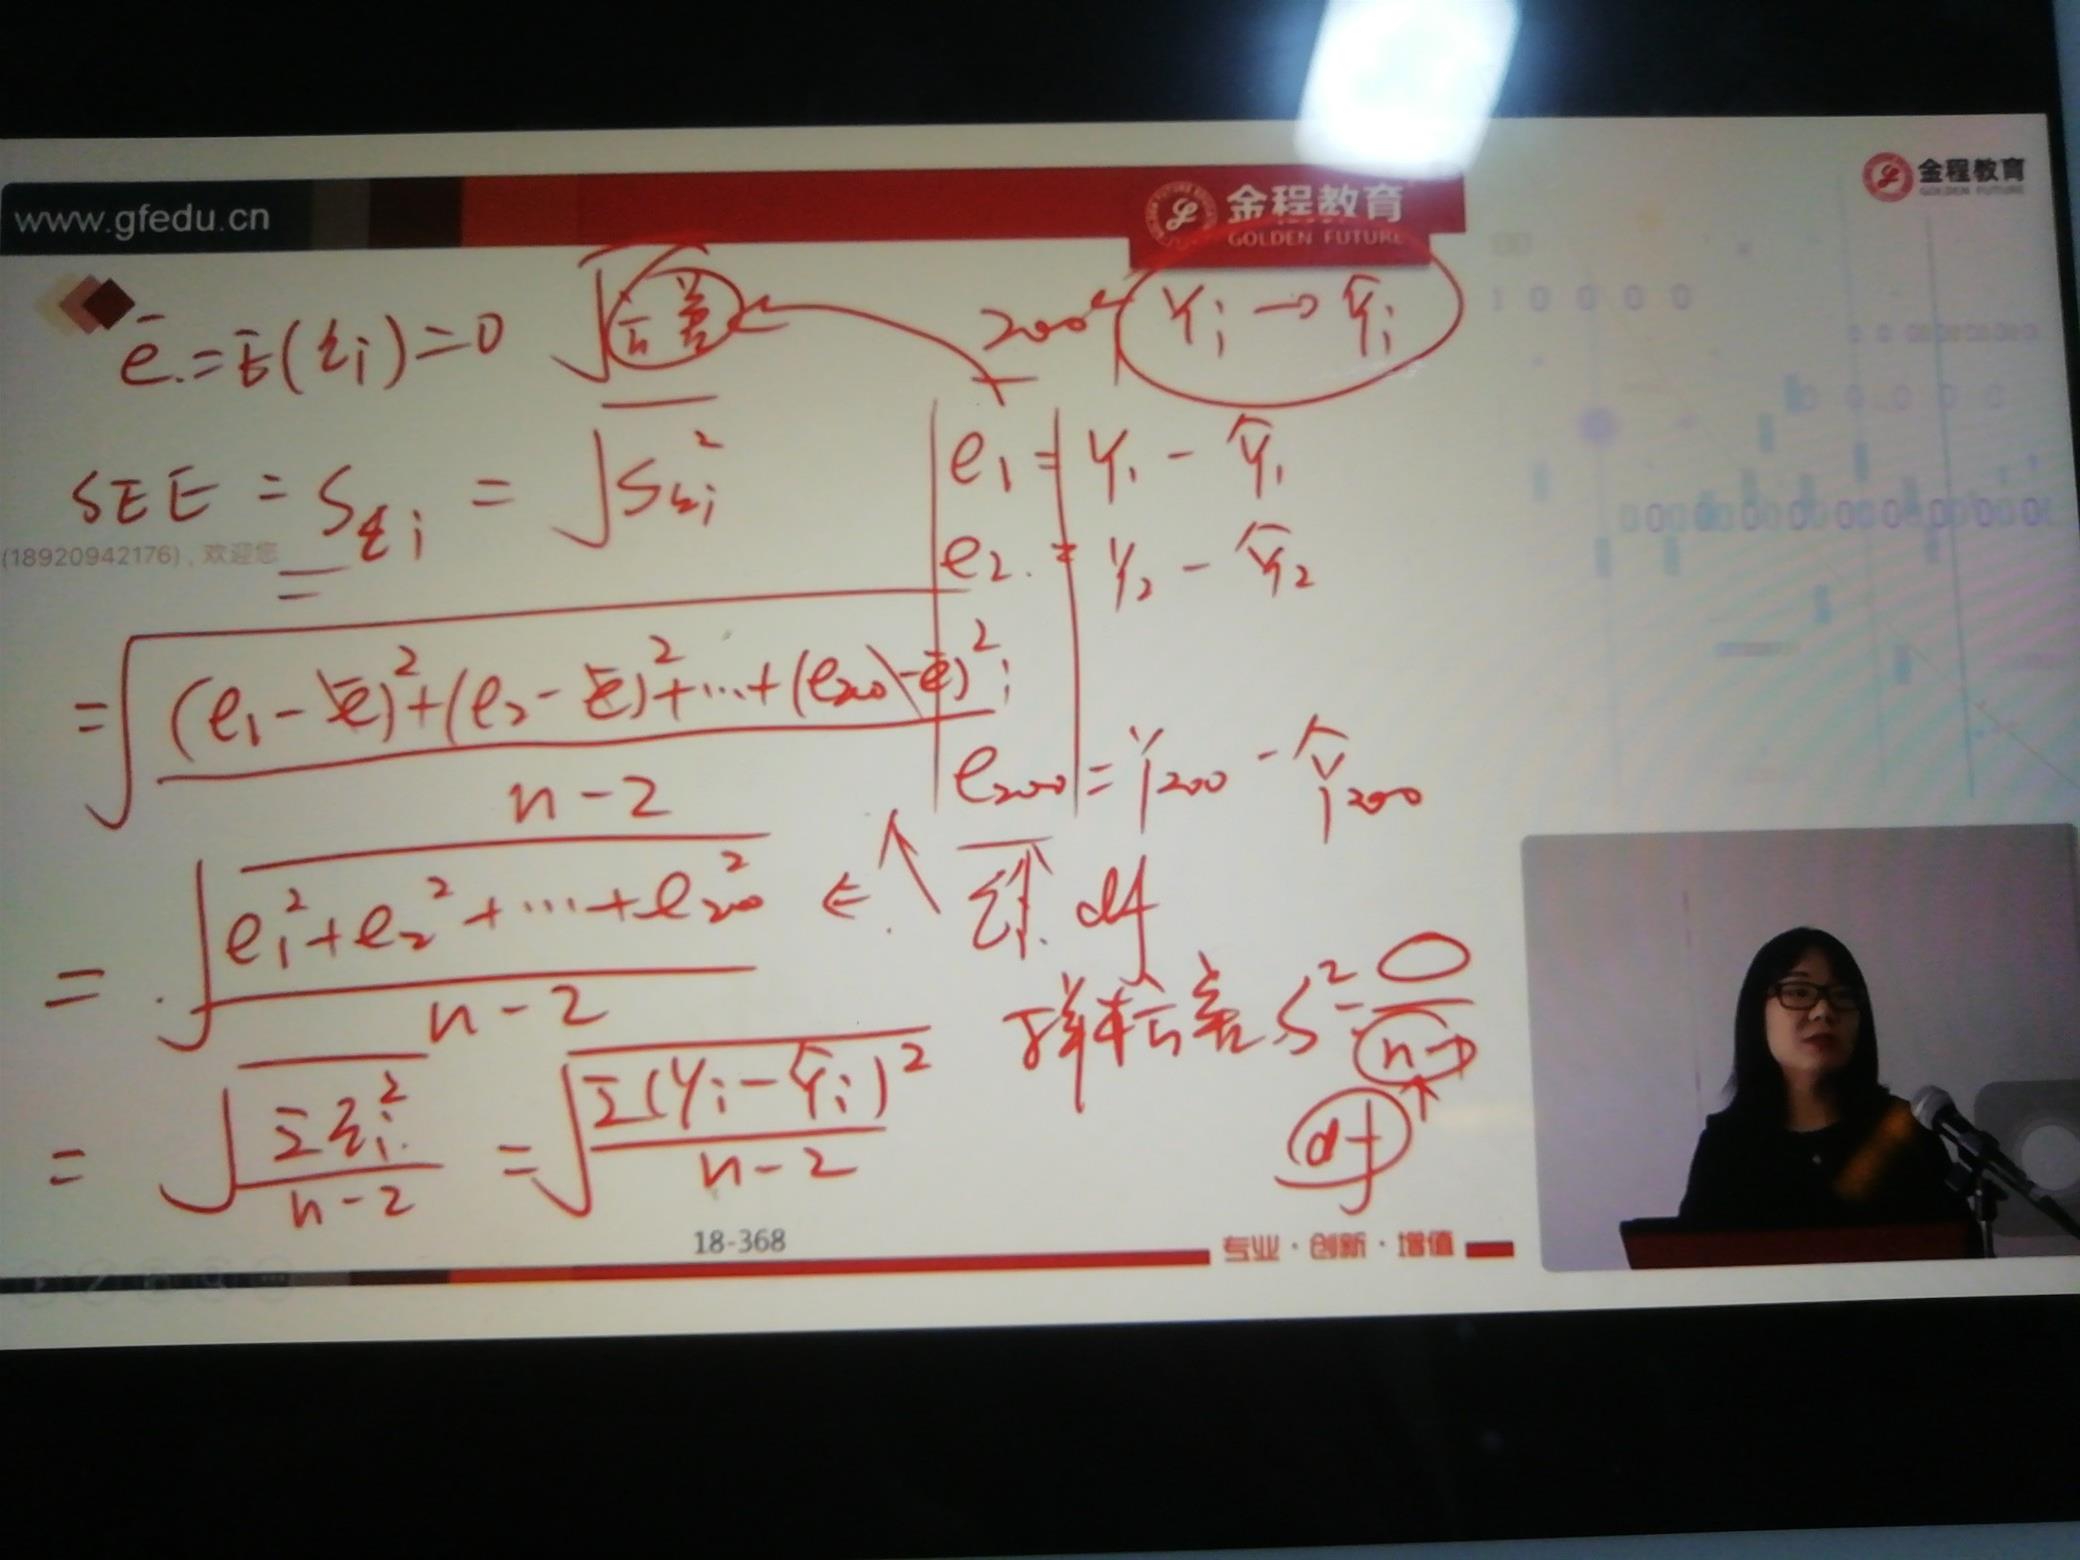 www.gfedu.cn
金程教育
GOLDEN FUTURE
金程教育
GOLDEN FUTURE
ē = E(εi) = 0
√方差
200个
Yi → Ŷi
SEE = Sεi = √Sεi²
e1 = Y1 - Ŷ1
(18920942176), 欢迎您
e2 = Y2 - Ŷ2
= √((e1 - ē)² + (e2 - ē)² + ... + (e200 - ē)² / n-2)
e200 = Y200 - Ŷ200
= √(e1² + e2² + ... + e200² / n-2)
df
样本方差 S² =
n-1
df
= √(Σεi² / n-2) = √(Σ(Yi - Ŷi)² / n-2)
18-368
专业·创新·增值